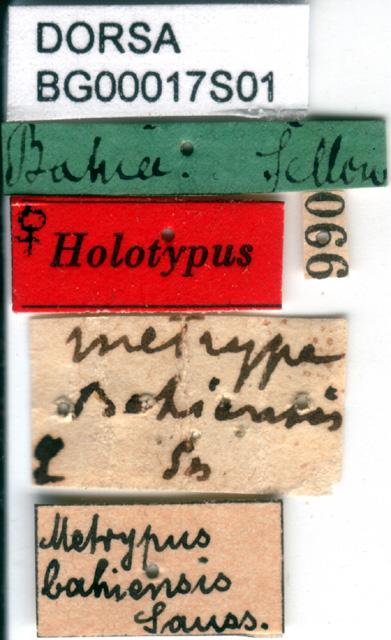 DORSA
BG00017S01
Bahia. Sellow
♀ Holotypus
066
metrype
Bahiensis
♀ Ss
Metrypus
bahiensis
Sauss.